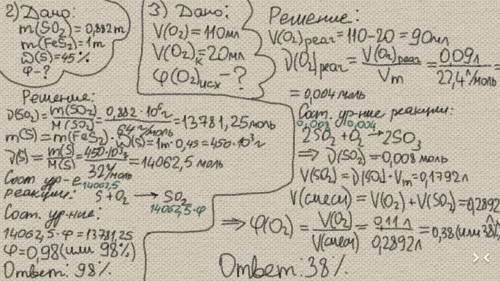 2) Дано:
m(SO₂) = 0,882т
m(FeS₂) = 1т
ω(S) = 45%
φ-?
Решение:
ν(SO₂) = m(SO₂)/M(SO₂) = 0,882·10⁶г/64г/моль = 13781,25моль
m(S) = m(FeS₂)·ω(S) = 1т·0,45 = 450·10³г
ν(S) = m(S)/M(S) = 450·10³г/32г/моль = 14062,5моль
Сост ур-е
реакции: S + O₂ → SO₂
14062,5 14062,5·φ
Сост. ур-ние:
14062,5·φ = 13781,25
φ = 0,98 (или 98%)
Ответ: 98%
3) Дано:
V(O₂) = 110мл
V(O₂)к = 20мл
φ(O₂)исх -?
Решение:
V(O₂)реаг = 110-20 = 90мл
ν(O₂)реаг = V(O₂)реаг/Vm = 0,09л/22,4л/моль =
= 0,004моль
Сост. ур-ние реакции:
0,008 0,004
2SO₂ + O₂ → 2SO₃
⇒ ν(SO₂) = 0,008моль
V(SO₂) = ν(SO₂)·Vm = 0,1792л
V(смеси) = V(O₂) + V(SO₂) = 0,2892
⇒ φ(O₂) = V(O₂)/V(смеси) = 0,11л/0,2892л = 0,38 (или 38%)
Ответ: 38%